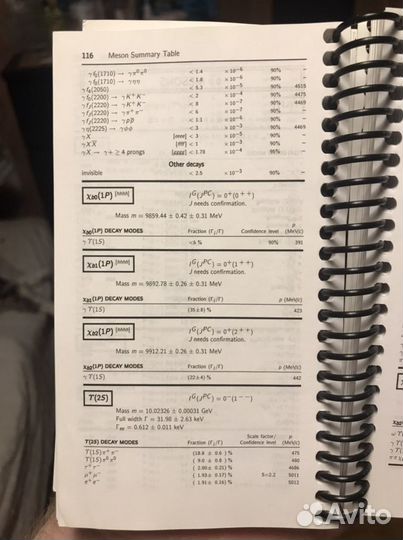 116 Meson Summary Table
γ f₀(1710) → γ π⁰ π⁰ < 1.4 × 10⁻⁶ 90% –
γ f₀(1710) → γ η η < 1.8 × 10⁻⁶ 90% –
γ f₄(2050) < 5.3 × 10⁻⁵ 90% 4515
γ f₀(2200) → γ K⁺ K⁻ < 2 × 10⁻⁴ 90% 4475
γ f_J(2220) → γ K⁺ K⁻ < 8 × 10⁻⁷ 90% 4469
γ f_J(2220) → γ π⁺ π⁻ < 6 × 10⁻⁷ 90% –
γ f_J(2220) → γ p p̄ < 1.1 × 10⁻⁶ 90% –
γ η(2225) → γ φ φ < 3 × 10⁻³ 90% 4469
γ X < 3 × 10⁻⁵ 90% –
γ X X̄ < 1 × 10⁻³ 90% –
γ X → γ + ≥ 4 prongs < 1.78 × 10⁻⁴ 95% –
Other decays
invisible < 2.5 × 10⁻³ 90% –
χ_b0(1P) [hhhh] I^G(J^PC) = 0⁺(0⁺⁺)
J needs confirmation.
Mass m = 9859.44 ± 0.42 ± 0.31 MeV
χ_b0(1P) DECAY MODES Fraction (Γᵢ/Γ) Confidence level p (MeV/c)
γ ϒ(1S) <6 % 90% 391
χ_b1(1P) [hhhh] I^G(J^PC) = 0⁺(1⁺⁺)
J needs confirmation.
Mass m = 9892.78 ± 0.26 ± 0.31 MeV
χ_b1(1P) DECAY MODES Fraction (Γᵢ/Γ) p (MeV/c)
γ ϒ(1S) (35±8) % 423
χ_b2(1P) [hhhh] I^G(J^PC) = 0⁺(2⁺⁺)
J needs confirmation.
Mass m = 9912.21 ± 0.26 ± 0.31 MeV
χ_b2(1P) DECAY MODES Fraction (Γᵢ/Γ) p (MeV/c)
γ ϒ(1S) (22±4) % 442
ϒ(2S) I^G(J^PC) = 0⁻(1⁻⁻)
Mass m = 10.02326 ± 0.00031 GeV
Full width Γ = 31.98 ± 2.63 keV
Γ_ee = 0.612 ± 0.011 keV
ϒ(2S) DECAY MODES Fraction (Γᵢ/Γ) Scale factor/ Confidence level p (MeV/c)
ϒ(1S) π⁺ π⁻ (18.8 ± 0.6 ) % 475
ϒ(1S) π⁰ π⁰ ( 9.0 ± 0.8 ) % 480
τ⁺ τ⁻ ( 2.00 ± 0.21) % 4686
μ⁺ μ⁻ ( 1.93 ± 0.17) % S=2.2 5011
e⁺ e⁻ ( 1.91 ± 0.16) % 5012
Avito